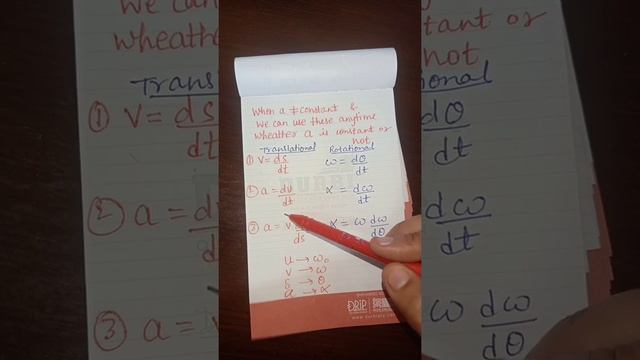 When a ≠ constant &
We can use these anytime
wheather a is constant or
not
Translational Rotational
① V = ds/dt ω = dθ/dt
② a = dv/dt α = dω/dt
③ a = v /ds α = ω dω/dθ
u → ω₀
v → ω
s → θ
a → α
DRIP